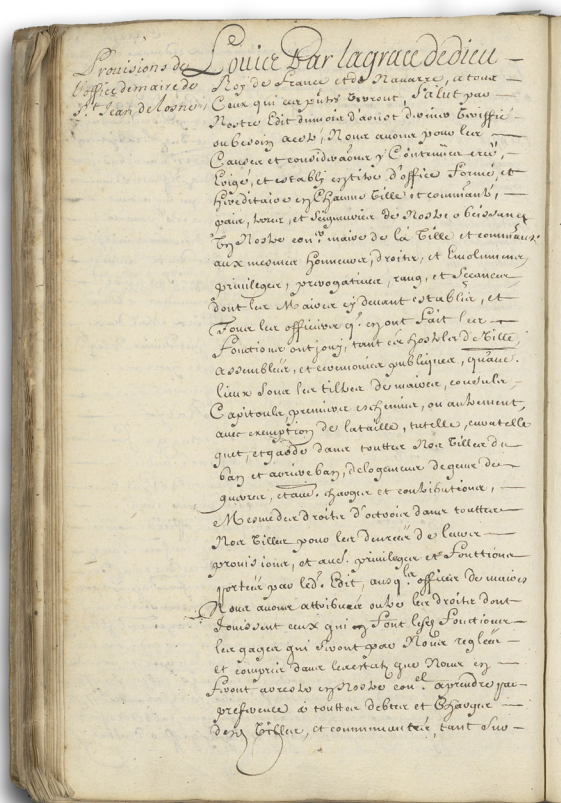 Provisions de
L'office de maire de
St Jean de Losne
Louis Par la grace de dieu
Roy de France et de Navarre, a tous
Ceux qui ces pntes verront, Salut par
Nostre Edit du mois d'aoust dernier veriffié
ou besoin a esté, Nous avons pour les
Causes et considerãons y Contenues creé,
Erigé, et establi en titre d'office Formé, et
hereditaire en Chacune Ville et communté,
pais, terres, et Seigneuries de Nostre obeissance
Un Nostre conr. maire de la Ville et commũauté
aux mesmes honneurs, droits, et Emolumens,
privileges, prerogatives, rang, et Seances
dont les Maires cy devant establis, et
Tous les officiers q. en ont Fait les
Fonctions ont jouy, tant es hostels de Ville,
assemblées, et ceremonies publiques, qu'aut.
lieux Sous les tiltres de maires, consuls,
Capitouls, premiers eschevins, ou autrement,
avec exemption de la taille, tutelle, curatelle
guet, et garde dans toutes Nos Villes du
ban et arriere ban, de logemens de gens de
guerres, et aut. charges et contributions,
Mesme des droits d'octrois dans touttes
Nos Villes pour les denrées de leurs
provisions, et aut. privileges et Fonctions
portées par led. Edit, ausq.ls offices de maires
Nous avons attribués outre les droits dont
Jouissent ceux qui en Font lesd. Fonctions
les gages qui seront par Nous reglées
et compris dans les estats que Nous en
Feront arrester en Nostre con.el a prendre par
preference a touttes debtes et Charges
desd. Villes, et communautés, tant sur